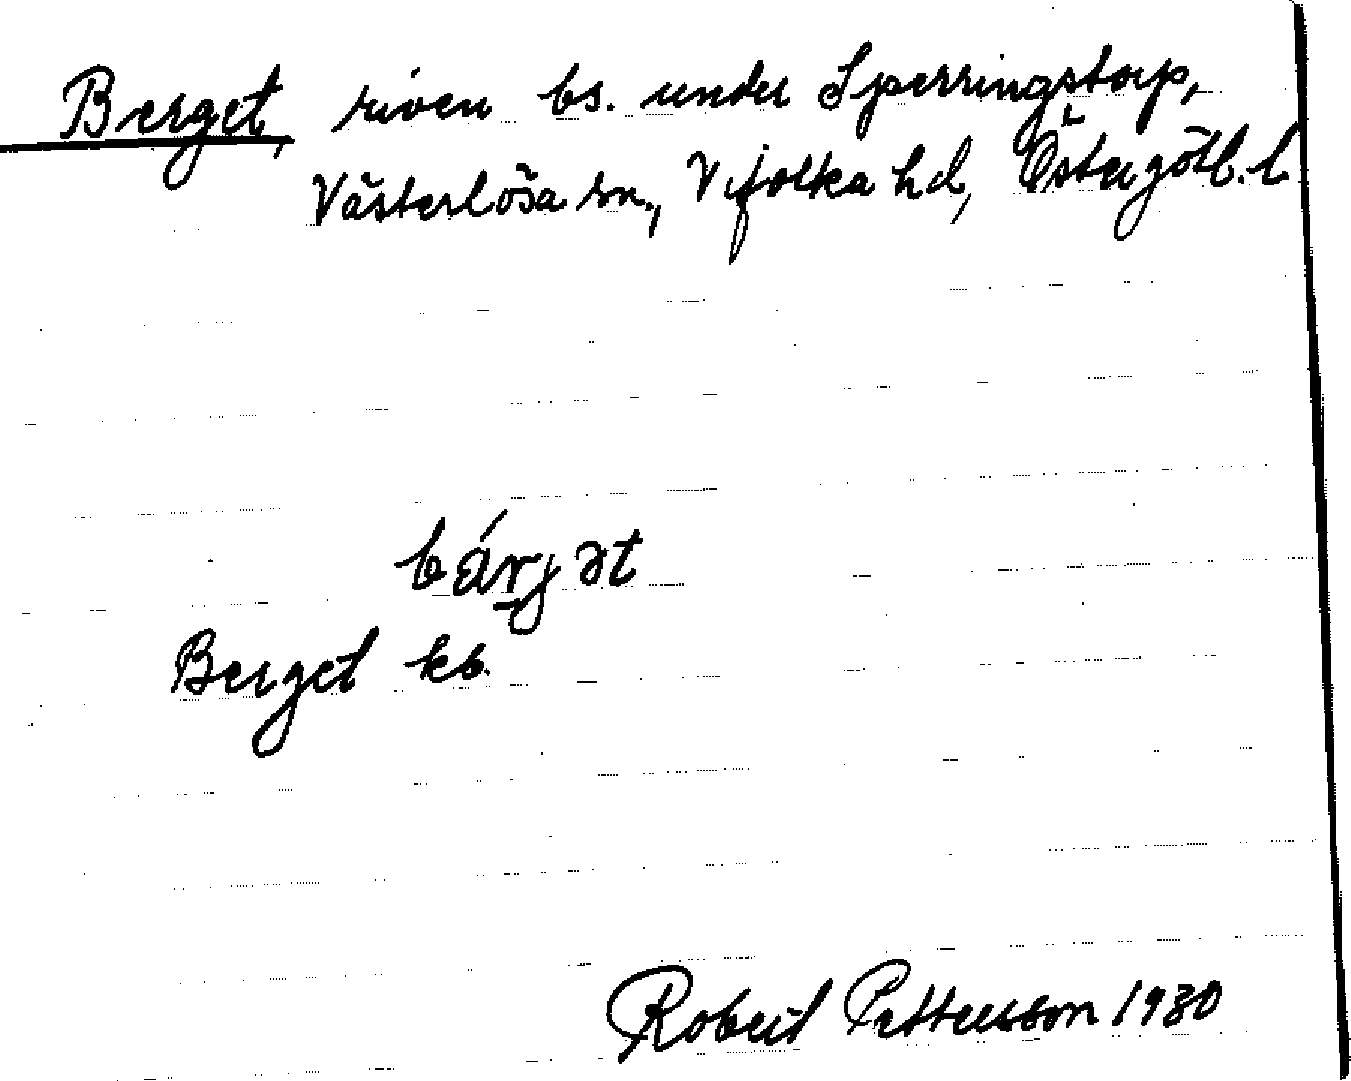 Berget, riven bs. under Sperringstorp,
Västerlösa sn., Vifolka hd, Östergötl. l
bä́rjət
Berget kb.
Robert Pettersson 1930